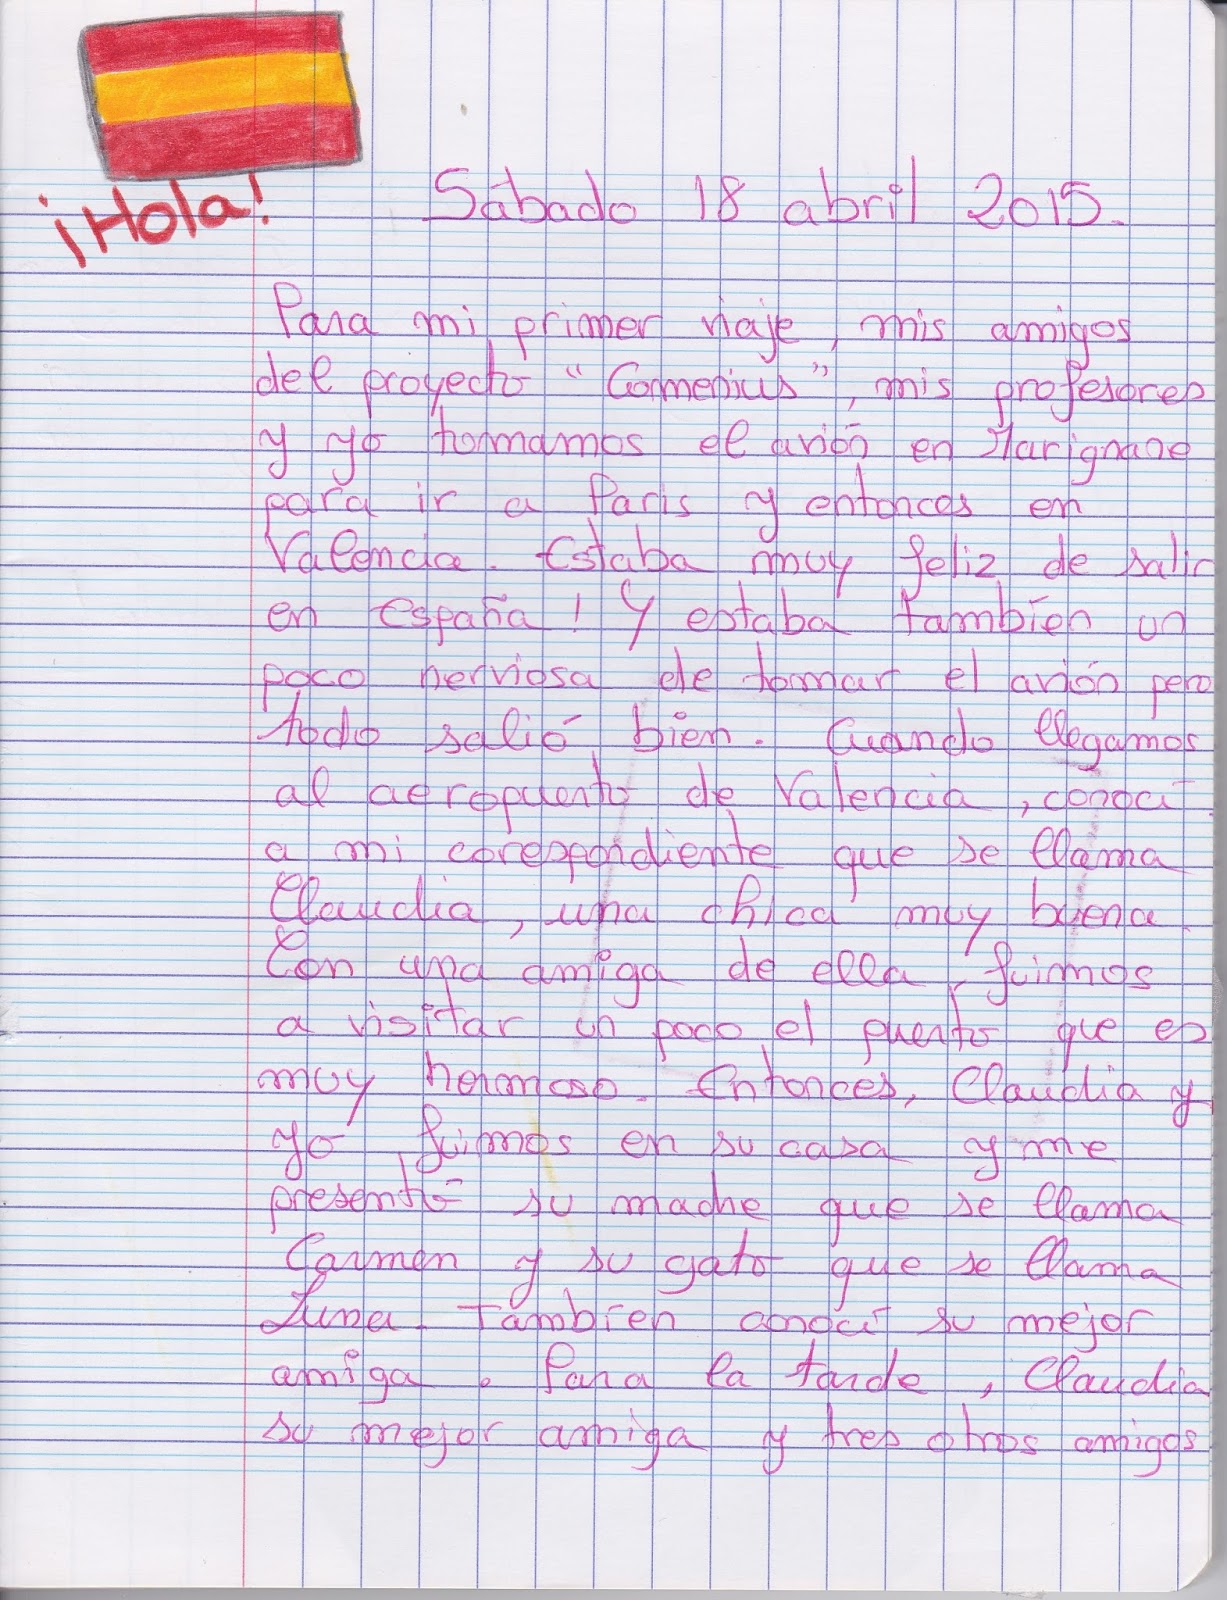 ¡Hola!
Sábado 18 abril 2015.
Para mi primer viaje, mis amigos
del proyecto "Comenius", mis profesores
y yo tomamos el avión en Marignane
para ir a Paris y entonces en
Valencia. Estaba muy feliz de salir
en España ! Y estaba también un
poco nerviosa de tomar el avión pero
todo salió bien. Cuando llegamos
al aeropuerto de Valencia, conocí
a mi corespondiente que se llama
Claudia, una chica muy buena.
Con una amiga de ella, fuimos
a visitar un poco el puerto que es
muy hermoso. Entonces, Claudia y
yo fuimos en su casa y me
presentó su madre que se llama
Carmen y su gato que se llama
Luna. También conocí su mejor
amiga. Para la tarde, Claudia
su mejor amiga y tres otros amigos